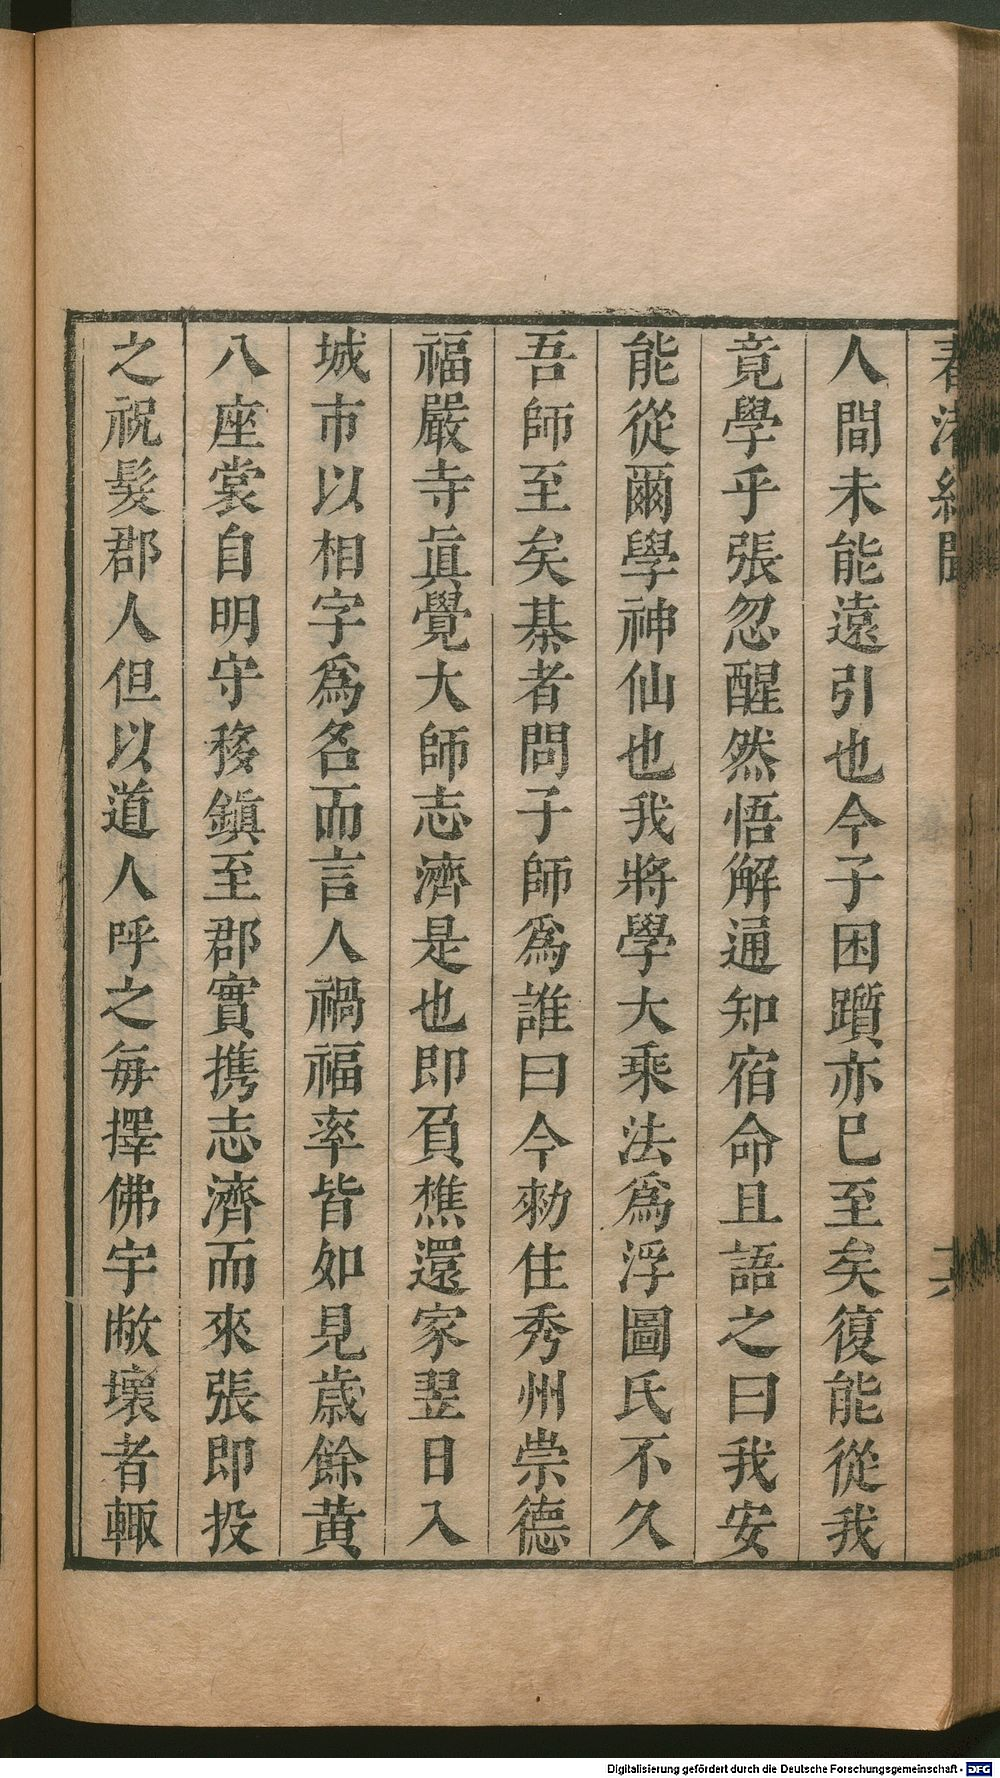 春渚紀聞
人間未能遠引也今子困躓亦已至矣復能從我
竟學乎張忽醒然悟解通知宿命且語之曰我安
能從爾學神仙也我將學大乘法爲浮圖氏不久
吾師至矣棊者問子師爲誰曰今勑住秀州崇德
福嚴寺眞覺大師志濟是也即負樵還家翌日入
城市以相字爲名而言人禍福率皆如見歲餘黄
八座裳自明守移鎭至郡實携志濟而來張即投
之祝髮郡人但以道人呼之每擇佛宇敝壞者輙
Digitalisierung gefördert durch die Deutsche Forschungsgemeinschaft - DFG